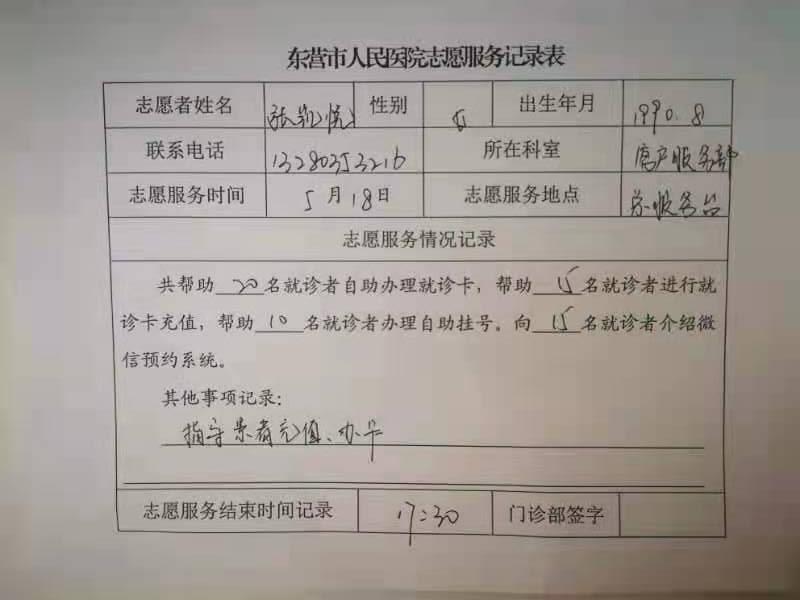 东营市人民医院志愿服务记录表
志愿者姓名 张凯悦 性别 女 出生年月 1990.8
联系电话 13280353216 所在科室 客户服务部
志愿服务时间 5月18日 志愿服务地点 总服务台
志愿服务情况记录
共帮助20名就诊者自助办理就诊卡，帮助15名就诊者进行就
诊卡充值，帮助10名就诊者办理自助挂号。向15名就诊者介绍微
信预约系统。
其他事项记录：
指导患者充值、办卡
志愿服务结束时间记录 17:30 门诊部签字